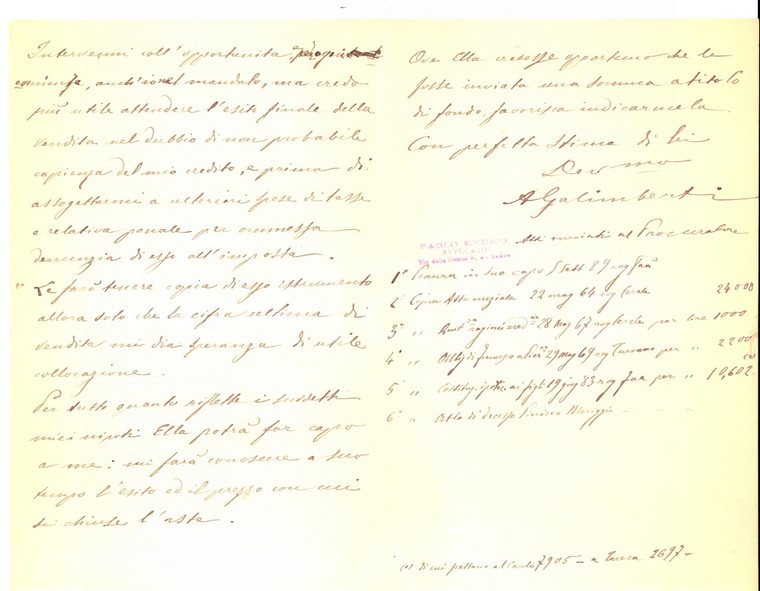 Intervenni coll' opportunità
anch'io nel mandato, ma credo
più utile attendere l'esito finale della
vendita nel dubbio di non probabile
capienza del mio credito, e prima di
assogettarmi a ulteriori spese di tasse
e relativa penale per ommessa
denunzia di esso all'imposta.
Le farò tenere copia di esso istrumento
allora solo che la cifra ultima di
vendita mi dia speranza di utile
collocazione.
Per tutto quanto riflette i suddetti
miei nipoti Ella potrà far capo
a me: mi farà conoscere a suo
tempo l'esito ed il prezzo con cui
si chiuse l'asta.
Ove Ella credesse opportuno che le
fosse inviata una somma a titolo
di fondo, favorisca indicarmela.
Con perfetta stima di Lei
Dev mo
A Galimberti
PAOLO ENRICO
AVVOCATO
Atti inviati al Procuratore
1° Procura in suo capo 5 Sett 89 rog
2° Copia Atto nuziale 22 mag 64 rog 24000
3° " 28 Mag 67 rog per lire 1000
4° " 29 mag 69 rog per " 2200
5° " 19 giug 83 rog per " 10,602
6° " Atto di decesso
di cui spettano al Carlo 7905 - a Teresa 2697 -